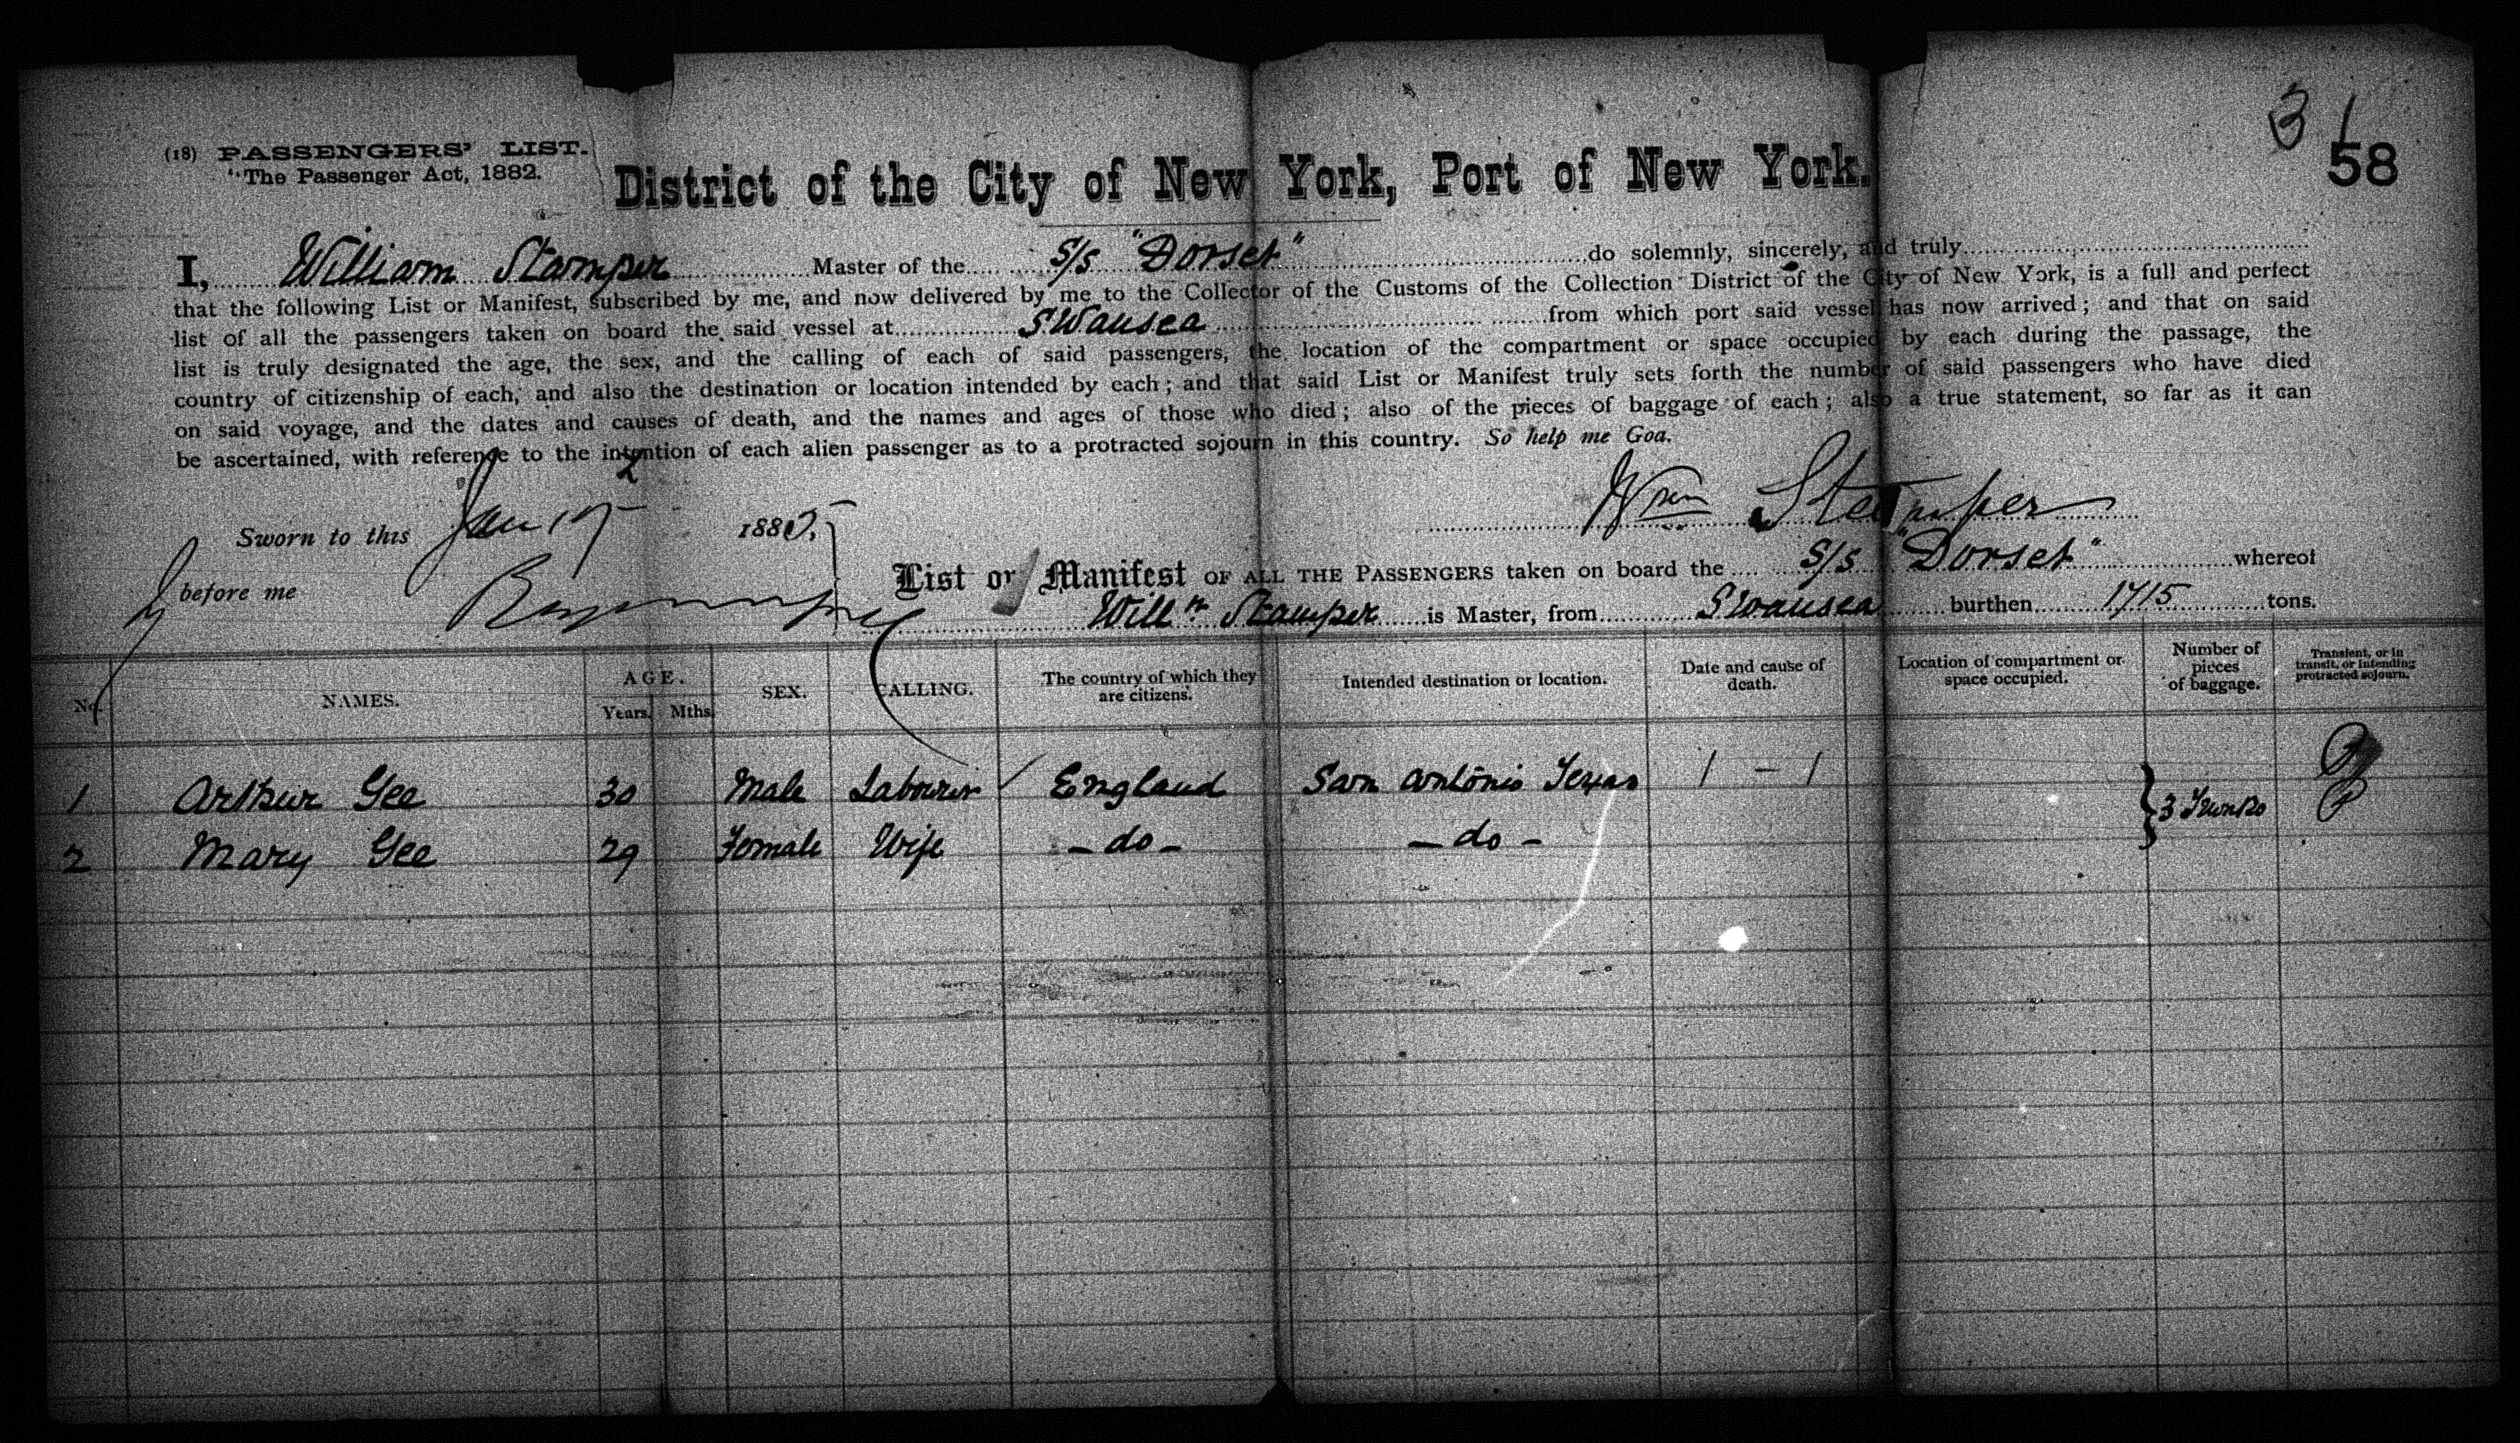 31
(18) PASSENGERS' LIST.
"The Passenger Act, 1882.
58
District of the City of New York, Port of New York.
I, William Stamper Master of the S/s "Dorset" do solemnly, sincerely, and truly
that the following List or Manifest, subscribed by me, and now delivered by me to the Collector of the Customs of the Collection District of the City of New York, is a full and perfect
list of all the passengers taken on board the said vessel at Swansea from which port said vessel has now arrived; and that on said
list is truly designated the age, the sex, and the calling of each of said passengers, the location of the compartment or space occupied by each during the passage, the
country of citizenship of each, and also the destination or location intended by each; and that said List or Manifest truly sets forth the number of said passengers who have died
on said voyage, and the dates and causes of death, and the names and ages of those who died; also of the pieces of baggage of each; also a true statement, so far as it can
be ascertained, with reference to the intention of each alien passenger as to a protracted sojourn in this country. So help me God.
Wm Stamper
Sworn to this Jan 188
before me
List or Manifest OF ALL THE PASSENGERS taken on board the S/s "Dorset" whereof
Willm Stamper is Master, from Swansea burthen 1715 tons.
No. NAMES. AGE. Years. Mths. SEX. CALLING. The country of which they are citizens. Intended destination or location. Date and cause of death. Location of compartment or space occupied. Number of pieces of baggage. Transient, or in transit, or intending protracted sojourn.
1 Arthur Gee 30 Male Labourer England San Antonio Texas 3 Trunks
2 Mary Gee 29 Female Wife - do - - do -